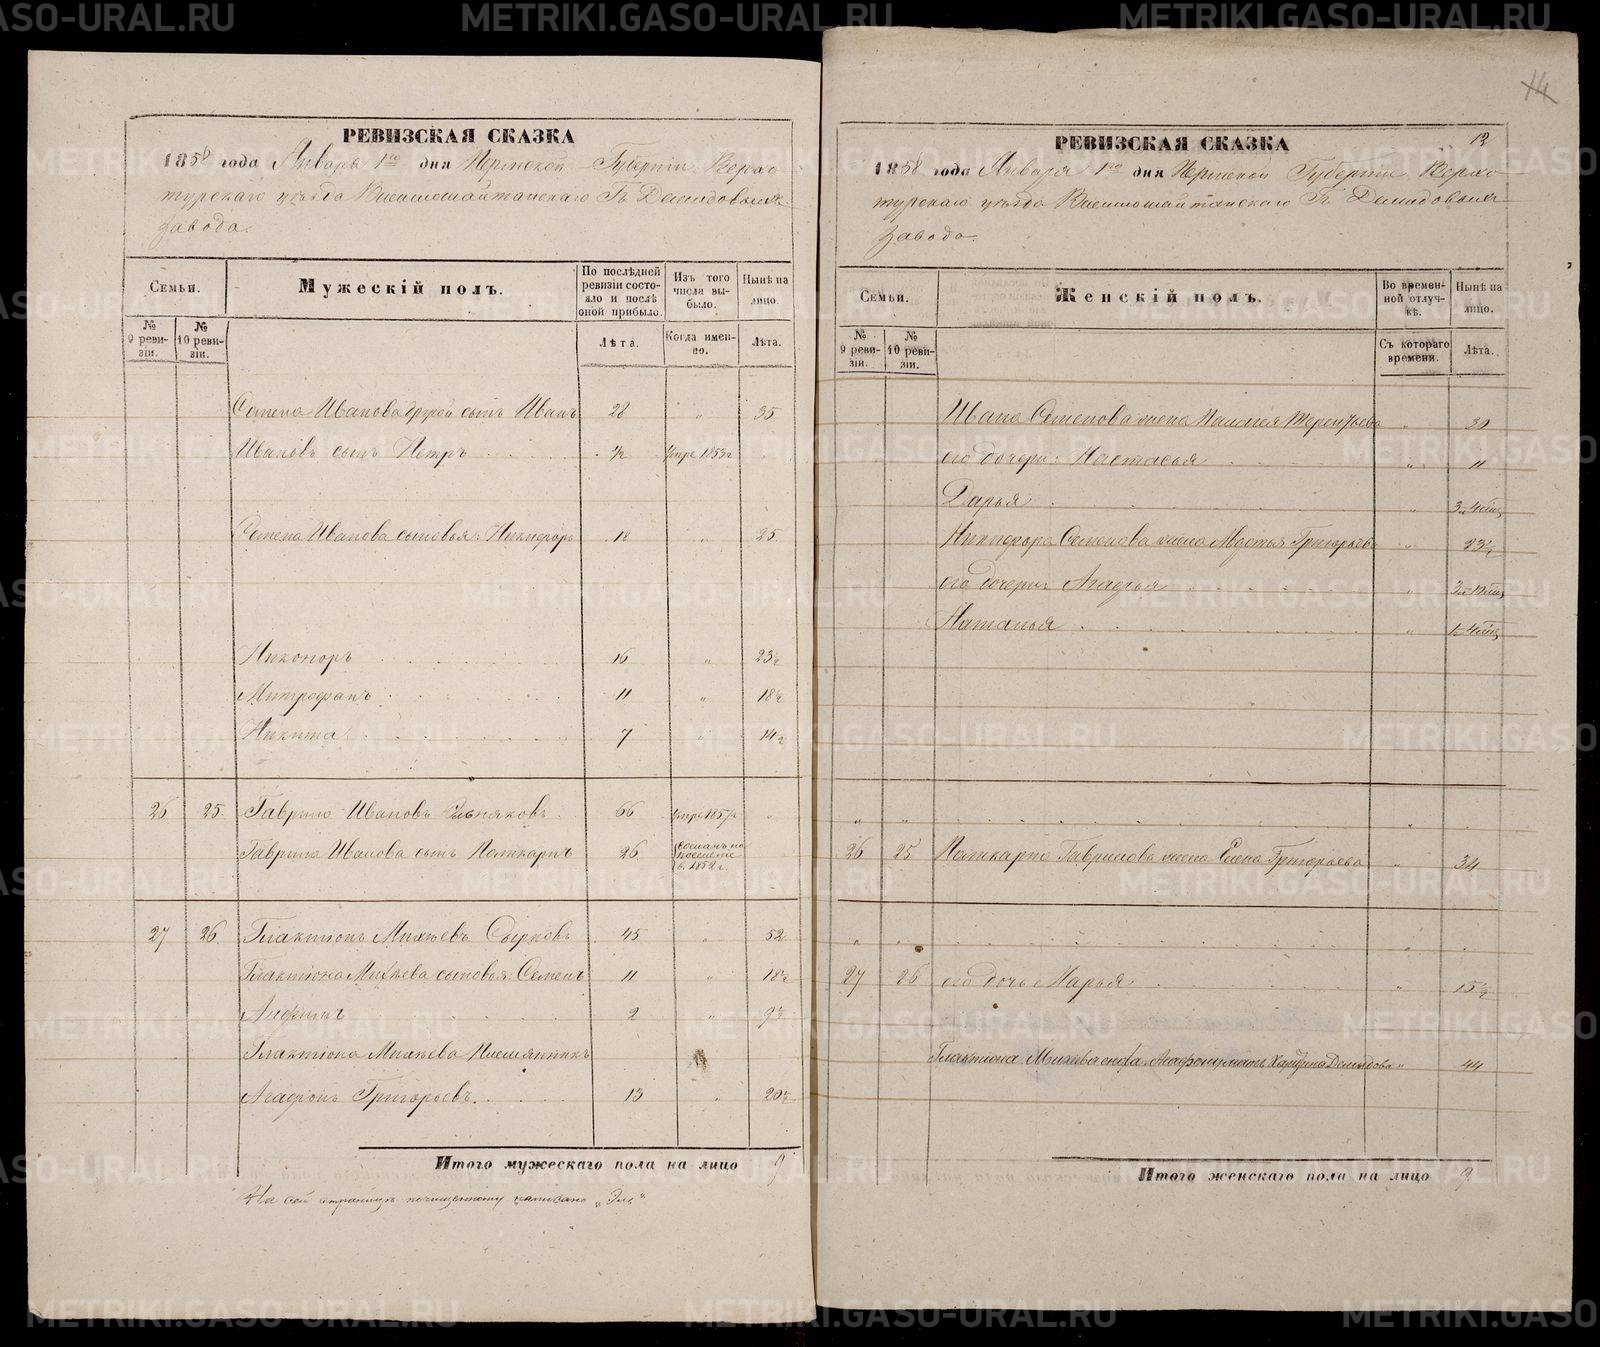 РЕВИЗСКАЯ СКАЗКА
1858 года Января 1го дня Пермской Губернiи Верхо-
турскаго уѣзда Висимошайтанскаго Гг. Демидовыхъ
завода.
Семьи.
Мужескiй полъ.
По послѣдней ревизiи состо-яло и послѣ оной прибыло.
Изъ того числа вы-было.
Нынѣ на лицо.
№ 9 реви-зiи.
№ 10 реви-зiи.
Лѣта.
Когда имен-но.
Лѣта.
Семена Иванова другой сынъ Иванъ 28 " 35
Ивановъ сынъ Петръ ½ умре 1853 г
Семена Иванова сыновья: Никифоръ 18 " 25
Никоноръ 16 " 23½
Митрофанъ 11 " 18½
Никита 7 " 14½
26 25 Гаврило Ивановъ 66 умре 1857 г "
Гаврила Иванова сынъ Поликарпъ 26 сосланъ на поселенiе в. 1852 г.
27 26 Галактiонъ Михѣевъ Сырковъ 45 " 52
Галактiона Михѣева сыновья: Семенъ 11 " 18½
2 " 9½
Галактiона Михѣева Племянникъ
Агафонъ Григорьевъ 13 " 20½
Итого мужескаго пола на лицо 9
На сей страницѣ по чищенному написано „Эль"
14
РЕВИЗСКАЯ СКАЗКА 12
1858 года Января 1го дня Пермской Губернiи Верхо-
турскаго уѣзда Висимошайтанскаго Гг. Демидовыхъ
завода.
Семьи.
Женскiй полъ.
Во времен-ной отлуч-кѣ.
Нынѣ на лицо.
№ 9 реви-зiи.
№ 10 реви-зiи.
Съ котораго времени.
Лѣта.
Ивана Семенова жена Пелагея Терентьева " 30
его дочери: Настасья " 11
Дарья "
Никифора Семенова жена Григорьева " 23½
его дочери: Агафья "
Наталья "
26 25 Поликарпа Гаврилова жена Елена Григорьева " 34
27 26 его дочь Марья " 15½
Галактiона Михѣева Демидова " 44
Итого женскаго пола на лицо 9
METRIKI.GASO-URAL.RU